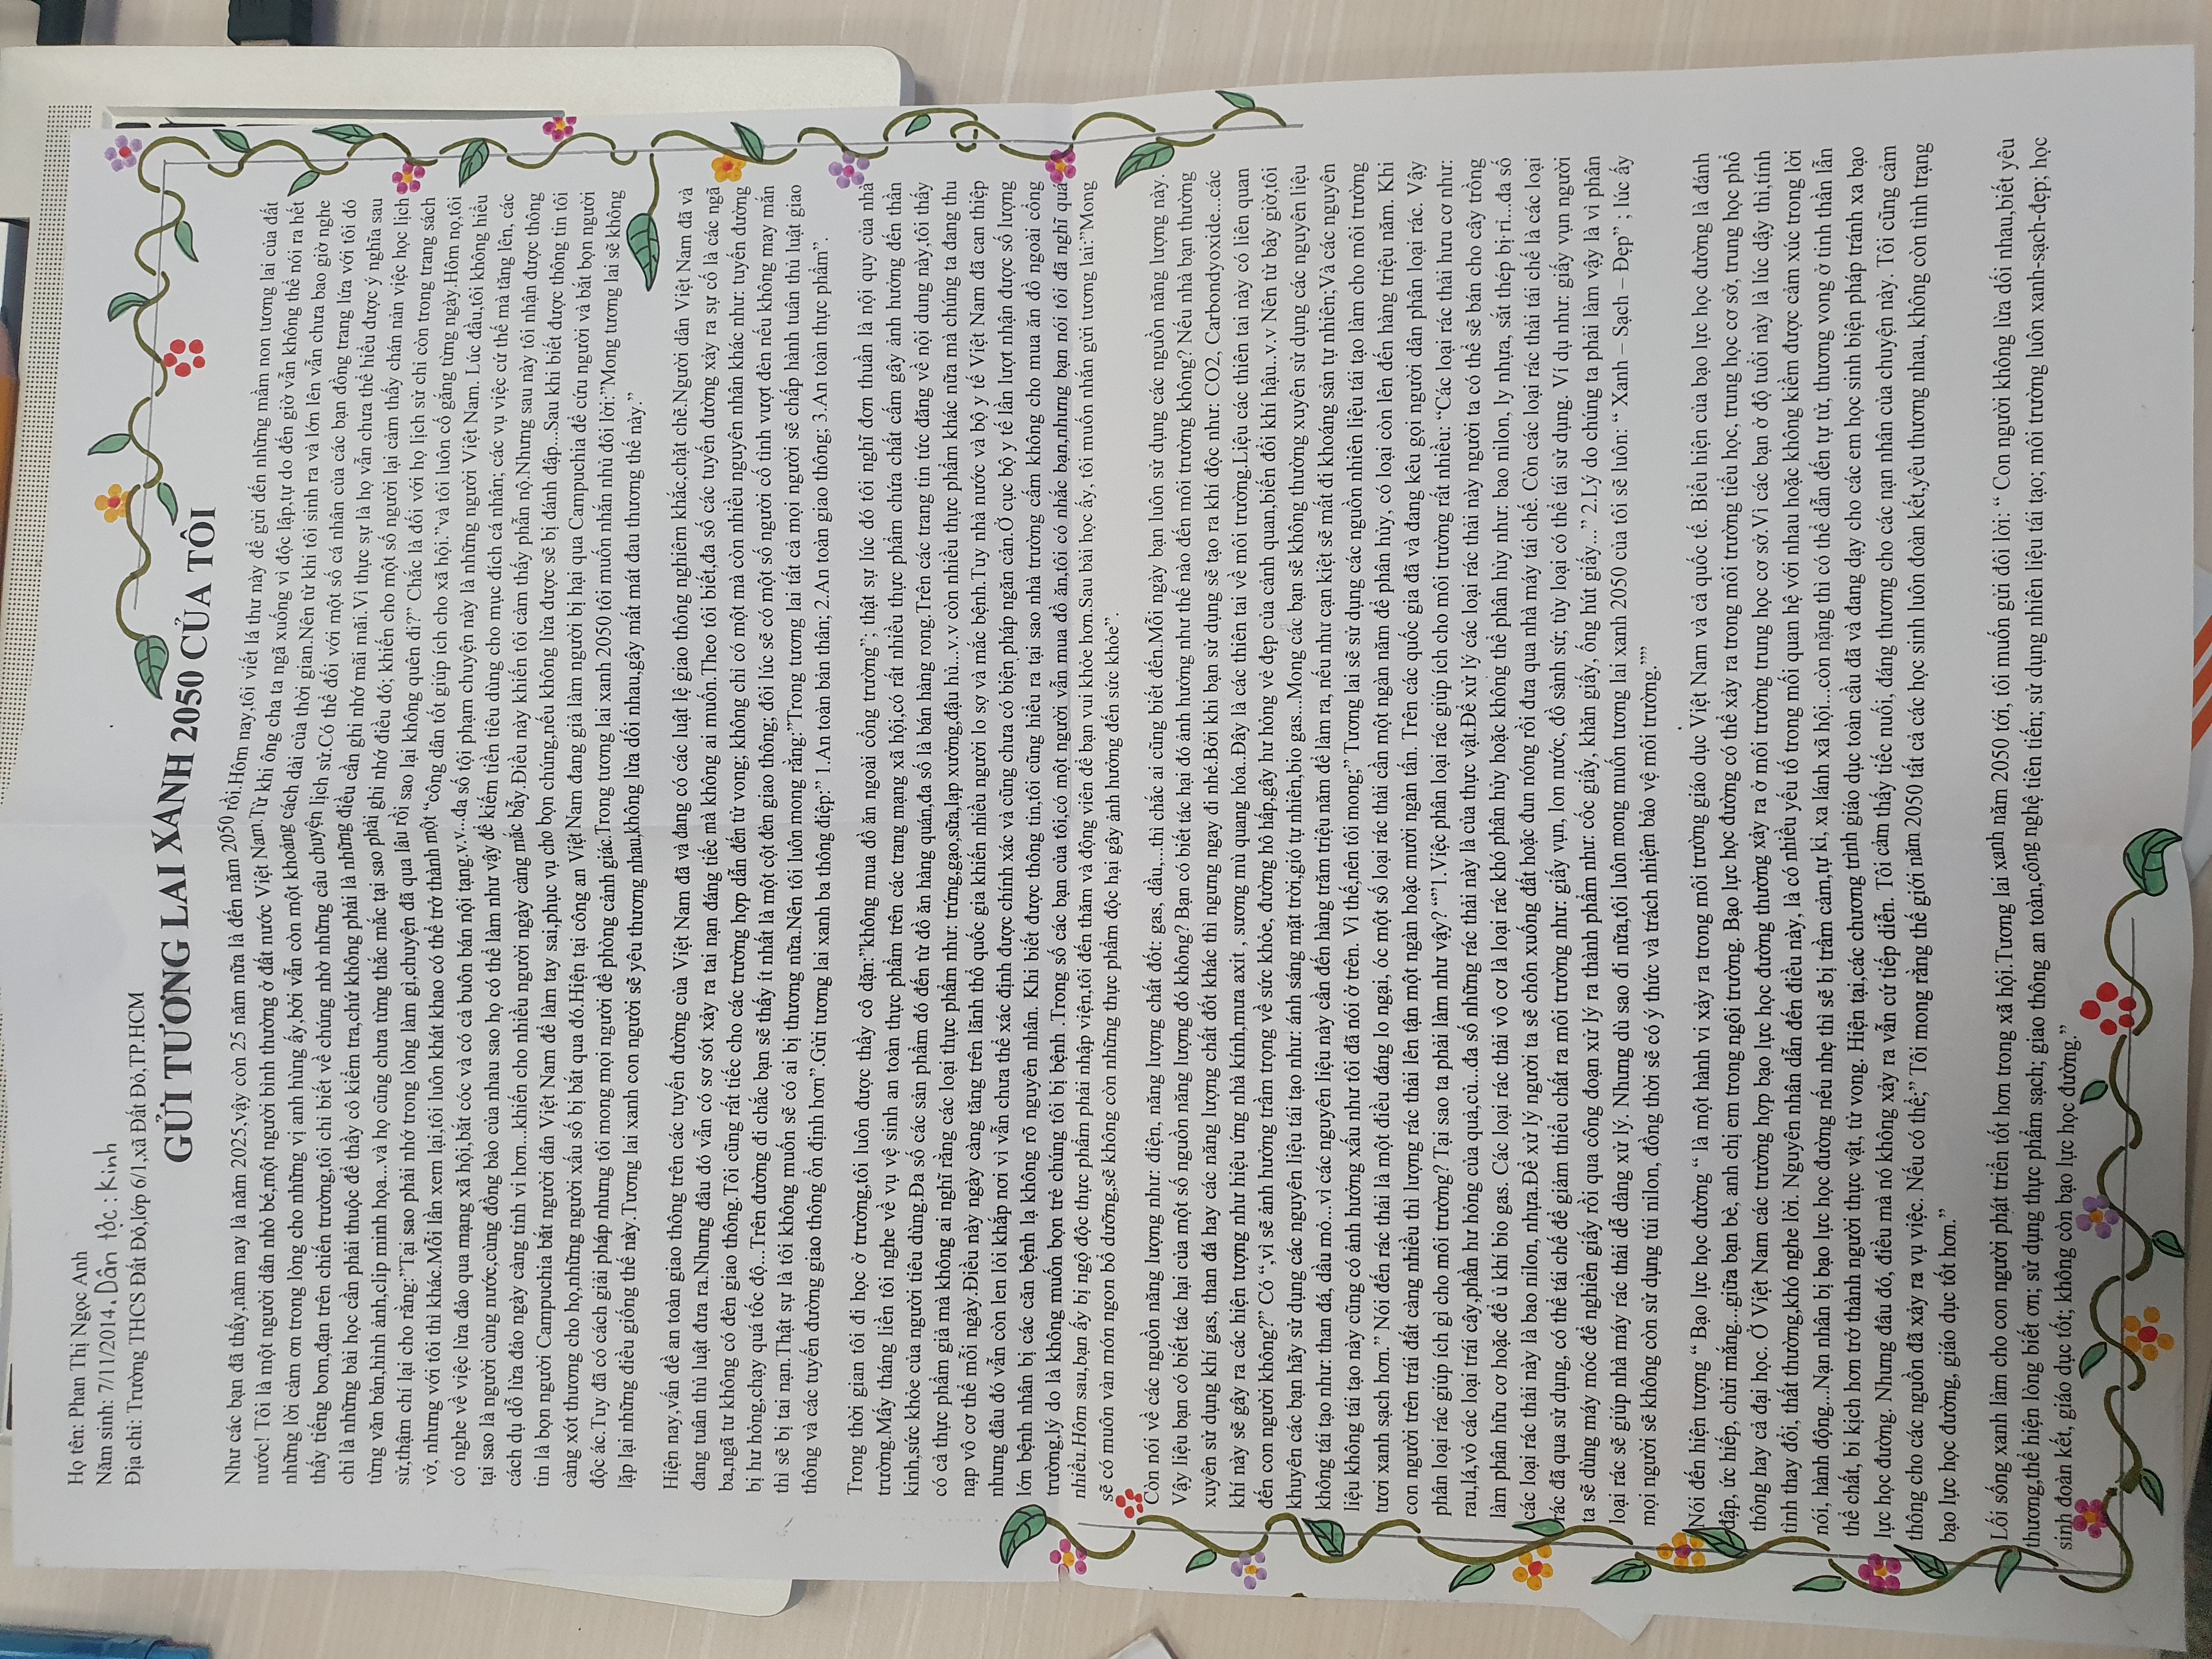 Họ tên: Phan Thị Ngọc Anh
Năm sinh: 7/11/2014. Dân tộc: Kinh
Địa chỉ: Trường THCS Đất Đỏ,lớp 6/1,xã Đất Đỏ,TP.HCM
GỬI TƯƠNG LAI XANH 2050 CỦA TÔI
Như các bạn đã thấy,năm nay là năm 2025,vậy còn 25 năm nữa là đến năm 2050 rồi.Hôm nay,tôi viết lá thư này để gửi đến những mầm non tương lai của đất
nước! Tôi là một người dân nhỏ bé,một người bình thường ở đất nước Việt Nam.Từ khi ông cha ta ngã xuống vì độc lập,tự do đến giờ vẫn không thể nói ra hết
những lời cảm ơn trong lòng cho những vị anh hùng ấy,bởi vẫn còn một khoảng cách dài của thời gian.Nên từ khi tôi sinh ra và lớn lên vẫn chưa bao giờ nghe
thấy tiếng bom,đạn trên chiến trường,tôi chỉ biết về chúng nhờ những câu chuyện lịch sử.Có thể đối với một số cá nhân của các bạn đồng trang lứa với tôi đó
chỉ là những bài học cần phải thuộc để thầy cô kiểm tra,chứ không phải là những điều cần ghi nhớ mãi mãi.Vì thực sự là họ vẫn chưa thể hiểu được ý nghĩa sau
từng văn bản,hình ảnh,clip minh họa...và họ cũng chưa từng thắc mắc tại sao phải ghi nhớ điều đó; khiến cho một số người lại cảm thấy chán nản việc học lịch
sử,thậm chí lại cho rằng:”Tại sao phải nhớ trong lòng làm gì,chuyện đã qua lâu rồi sao lại không quên đi?” Chắc là đối với họ lịch sử chỉ còn trong trang sách
vở, nhưng với tôi thì khác.Mỗi lần xem lại,tôi luôn khát khao có thể trở thành một “công dân tốt giúp ích cho xã hội.”và tôi luôn cố gắng từng ngày.Hôm nọ,tôi
có nghe về việc lừa đảo qua mạng xã hội,bắt cóc và có cả buôn bán nội tạng.v.v...đa số tội phạm chuyện này là những người Việt Nam. Lúc đầu,tôi không hiểu
tại sao là người cùng nước,cùng đồng bào của nhau sao họ có thể làm như vậy để kiếm tiền tiêu dùng cho mục đích cá nhân; các vụ việc cứ thế mà tăng lên, các
cách dụ dỗ lừa đảo ngày càng tinh vi hơn...khiến cho nhiều người ngày càng mắc bẫy.Điều này khiến tôi cảm thấy phẫn nộ.Nhưng sau này tôi nhận được thông
tin là bọn người Campuchia bắt người dân Việt Nam để làm tay sai,phục vụ cho bọn chúng,nếu không lừa được sẽ bị đánh đập...Sau khi biết được thông tin tôi
càng xót thương cho họ,những người xấu số bị bắt qua đó.Hiện tại công an Việt Nam đang giả làm người bị hại qua Campuchia để cứu người và bắt bọn người
độc ác.Tuy đã có cách giải pháp nhưng tôi mong mọi người đề phòng cảnh giác.Trong tương lai xanh 2050 tôi muốn nhắn nhủ đôi lời:”Mong tương lai sẽ không
lặp lại những điều giống thế này.Tương lai xanh con người sẽ yêu thương nhau,không lừa dối nhau,gây mất mát đau thương thế này.”
Hiện nay,vấn đề an toàn giao thông trên các tuyến đường của Việt Nam đã và đang có các luật lệ giao thông nghiêm khắc,chặt chẽ.Người dân Việt Nam đã và
đang tuân thủ luật đưa ra.Nhưng đâu đó vẫn có sơ sót xảy ra tai nạn đáng tiếc mà không ai muốn.Theo tôi biết,đa số các tuyến đường xảy ra sự cố là các ngã
ba,ngã tư không có đèn giao thông.Tôi cũng rất tiếc cho các trường hợp dẫn đến tử vong; không chỉ có một mà còn nhiều nguyên nhân khác như: tuyến đường
bị hư hỏng,chạy quá tốc độ...Trên đường đi chắc bạn sẽ thấy ít nhất là một cột đèn giao thông; đôi lúc sẽ có một số người cố tình vượt đèn nếu không may mắn
thì sẽ bị tai nạn.Thật sự là tôi không muốn sẽ có ai bị thương nữa.Nên tôi luôn mong rằng:”Trong tương lai tất cả mọi người sẽ chấp hành tuân thủ luật giao
thông và các tuyến đường giao thông ổn định hơn”.Gửi tương lai xanh ba thông điệp:” 1.An toàn bản thân; 2.An toàn giao thông; 3.An toàn thực phẩm”.
Trong thời gian tôi đi học ở trường,tôi luôn được thầy cô dặn:”không mua đồ ăn ngoài cổng trường”; thật sự lúc đó tôi nghĩ đơn thuần là nội quy của nhà
trường.Mấy tháng liền tôi nghe về vụ vệ sinh an toàn thực phẩm trên các trang mạng xã hội,có rất nhiều thực phẩm chứa chất cấm gây ảnh hưởng đến thần
kinh,sức khỏe của người tiêu dùng.Đa số các sản phẩm đó đến từ đồ ăn hàng quán,đa số là bán hàng rong.Trên các trang tin tức đăng về nội dung này,tôi thấy
có cả thực phẩm giả mà không ai nghĩ rằng các loại thực phẩm như: trứng,gạo,sữa,lạp xưởng,đậu hủ...v.v còn nhiều thực phẩm khác nữa mà chúng ta đang thu
nạp vô cơ thể mỗi ngày.Điều này ngày càng tăng trên lãnh thổ quốc gia khiến nhiều người lo sợ và mắc bệnh.Tuy nhà nước và bộ y tế Việt Nam đã can thiệp
nhưng đâu đó vẫn còn len lỏi khắp nơi vì vẫn chưa thể xác định được chính xác và cũng chưa có biện pháp ngăn cản.Ở cục bộ y tế lần lượt nhận được số lượng
lớn bệnh nhân bị các căn bệnh lạ không rõ nguyên nhân. Khi biết được thông tin,tôi cũng hiểu ra tại sao nhà trường cấm không cho mua ăn đồ ngoài cổng
trường,lý do là không muốn bọn trẻ chúng tôi bị bệnh .Trong số các bạn của tôi,có một người vẫn mua đồ ăn,tôi có nhắc bạn,nhưng bạn nói tôi đã nghĩ quá
nhiều.Hôm sau,bạn ấy bị ngộ độc thực phẩm phải nhập viện,tôi đến thăm và động viên để bạn vui khỏe hơn.Sau bài học ấy, tôi muốn nhắn gửi tương lai:”Mong
sẽ có muôn vàn món ngon bổ dưỡng,sẽ không còn những thực phẩm độc hại gây ảnh hưởng đến sức khỏe”.
Còn nói về các nguồn năng lượng như: điện, năng lượng chất đốt: gas, dầu,...thì chắc ai cũng biết đến.Mỗi ngày bạn luôn sử dụng các nguồn năng lượng này.
Vậy liệu bạn có biết tác hại của một số nguồn năng lượng đó không? Bạn có biết tác hại đó ảnh hưởng như thế nào đến môi trường không? Nếu nhà bạn thường
xuyên sử dụng khí gas, than đá hay các năng lượng chất đốt khác thì ngưng ngay đi nhé.Bởi khi bạn sử dụng sẽ tạo ra khí độc như: CO2, Carbondyoxide...các
khí này sẽ gây ra các hiện tượng như hiệu ứng nhà kính,mưa axit , sương mù quang hóa.Đây là các thiên tai về môi trường.Liệu các thiên tai này có liên quan
đến con người không?” Có “,vì sẽ ảnh hưởng trầm trọng về sức khỏe, đường hô hấp,gây hư hỏng vẻ đẹp của cảnh quan,biến đổi khí hậu..v.v Nên từ bây giờ,tôi
khuyên các bạn hãy sử dụng các nguyên liệu tái tạo như: ánh sáng mặt trời,gió tự nhiên,bio gas...Mong các bạn sẽ không thường xuyên sử dụng các nguyên liệu
không tái tạo như: than đá, dầu mỏ...vì các nguyên liệu này cần đến hàng trăm triệu năm để làm ra, nếu như cạn kiệt sẽ mất đi khoáng sản tự nhiên;Và các nguyên
liệu không tái tạo này cũng có ảnh hưởng xấu như tôi đã nói ở trên. Vì thế,nên tôi mong;” Tương lai sẽ sử dụng các nguồn nhiên liệu tái tạo làm cho môi trường
tươi xanh sạch hơn.” Nói đến rác thải là một điều đáng lo ngại , óc một số loại rác thải cần một ngàn năm để phân hủy, có loại còn lên đến hàng triệu năm. Khi
con người trên trái đất càng nhiều thì lượng rác thải lên tận một ngàn hoặc mười ngàn tấn. Trên các quốc gia đã và đang kêu gọi người dân phân loại rác. Vậy
phân loại rác giúp ích gì cho môi trường? Tại sao ta phải làm như vậy? “”1.Việc phân loại rác giúp ích cho môi trường rất nhiều: “Các loại rác thải hưu cơ như:
rau,lá,vỏ các loại trái cây,phần hư hỏng của quả,củ...đa số những rác thải này là của thực vật.Để xử lý các loại rác thải này người ta có thể sẽ bán cho cây trồng
làm phân hữu cơ hoặc để ủ khí bio gas. Các loại rác thải vô cơ là loại rác khó phân hủy hoặc không thể phân hủy như: bao nilon, ly nhựa, sắt thép bị rỉ...đa số
các loại rác thải này là bao nilon, nhựa.Để xử lý người ta sẽ chôn xuống đất hoặc đun nóng rồi đưa qua nhà máy tái chế. Còn các loại rác thải tái chế là các loại
rác đã qua sử dụng, có thể tái chế để giảm thiểu chất ra môi trường như: giấy vụn, lon nước, đồ sành sứ; tùy loại có thể tái sử dụng. Ví dụ như: giấy vụn người
ta sẽ dùng máy móc để nghiền giấy rồi qua công đoạn xử lý ra thành phẩm như: cốc giấy, khăn giấy, ống hút giấy...” 2.Lý do chúng ta phải làm vậy là vì phân
loại rác sẽ giúp nhà máy rác thải dễ dàng xử lý. Nhưng dù sao đi nữa,tôi luôn mong muốn tương lai xanh 2050 của tôi sẽ luôn: “ Xanh – Sạch – Đẹp” ; lúc ấy
mọi người sẽ không còn sử dụng túi nilon, đồng thời sẽ có ý thức và trách nhiệm bảo vệ môi trường.””
Nói đến hiện tượng “ Bạo lực học đường “ là một hành vi xảy ra trong môi trường giáo dục Việt Nam và cả quốc tế. Biểu hiện của bạo lực học đường là đánh
đập, ức hiếp, chửi mắng...giữa bạn bè, anh chị em trong ngôi trường. Bạo lực học đường có thể xảy ra trong môi trường tiểu học, trung học cơ sở, trung học phổ
thông hay cả đại học. Ở Việt Nam các trường hợp bạo lực học đường thường xảy ra ở môi trường trung học cơ sở.Vì các bạn ở độ tuổi này là lúc dậy thì,tính
tình thay đổi, thất thường,khó nghe lời. Nguyên nhân dẫn đến điều này, là có nhiều yếu tố trong mối quan hệ với nhau hoặc không kiềm được cảm xúc trong lời
nói, hành động...Nạn nhân bị bạo lực học đường nếu nhẹ thì sẽ bị trầm cảm,tự kỉ, xa lánh xã hội...còn nặng thì có thể dẫn đến tự tử, thương vong ở tinh thần lẫn
thể chất, bi kịch hơn trở thành người thực vật, tử vong. Hiện tại,các chương trình giáo dục toàn cầu đã và đang dạy cho các em học sinh biện pháp tránh xa bạo
lực học đường. Nhưng đâu đó, điều mà nó không xảy ra vẫn cứ tiếp diễn. Tôi cảm thấy tiếc nuối, đáng thương cho các nạn nhân của chuyện này. Tôi cũng cảm
thông cho các nguồn đã xảy ra vụ việc. Nếu có thể;” Tôi mong rằng thế giới năm 2050 tất cả các học sinh luôn đoàn kết,yêu thương nhau, không còn tình trạng
bạo lực học đường, giáo dục tốt hơn.”
Lối sống xanh làm cho con người phát triển tốt hơn trong xã hội.Tương lai xanh năm 2050 tới, tôi muốn gửi đôi lời: “ Con người không lừa dối nhau,biết yêu
thương,thể hiện lòng biết ơn; sử dụng thực phẩm sạch; giao thông an toàn,công nghệ tiên tiến; sử dụng nhiên liệu tái tạo; môi trường luôn xanh-sạch-đẹp; học
sinh đoàn kết, giáo dục tốt; không còn bạo lực học đường.”